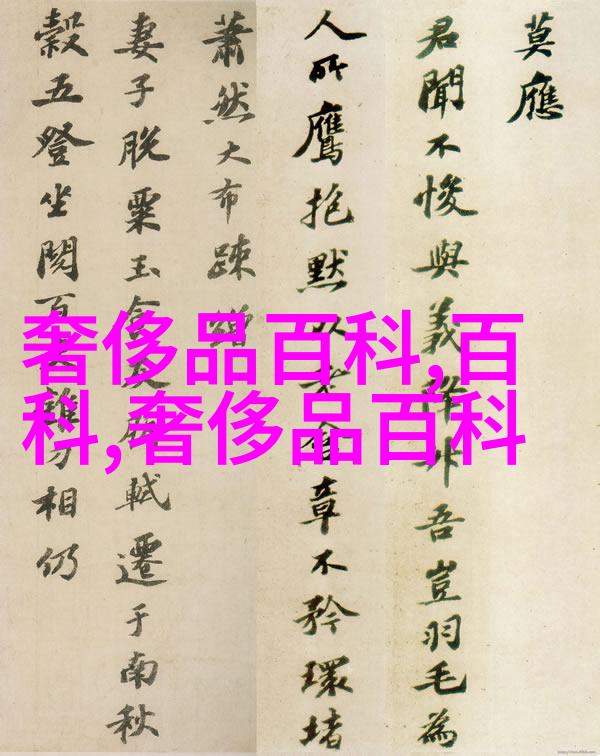 莫應
君聞不悛與義降升吾豈羽毛為
人所鷹抱默以含章不矜環堵
蕭然大布疎
妻子脫粟玉食軾遷于南秋
穀五登坐閱百相仍
奢侈品百科,百
科,奢侈品百科